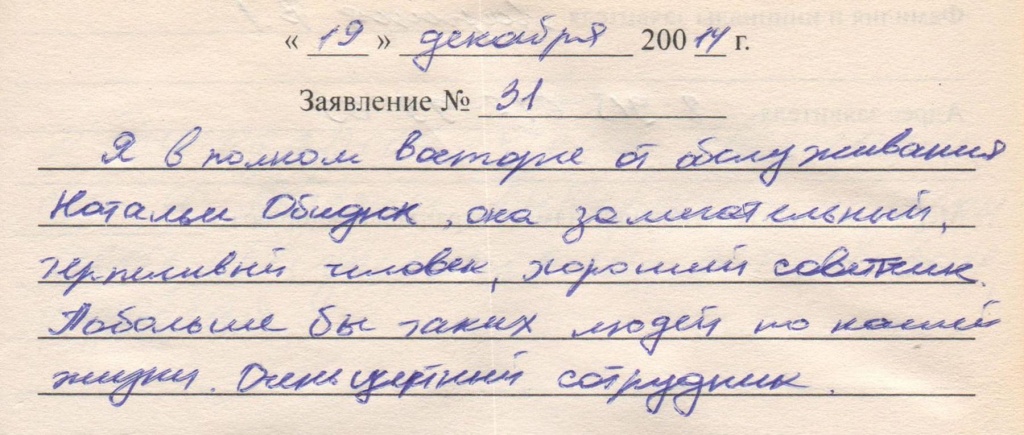 « 19 » декабря 20014 г.
Заявление № 31
Я в полном восторге от обслуживания
Натальи Обидюк, она замечательный,
терпеливый человек, хороший советник.
Побольше бы таких людей по нашей
жизни. Очень цепкий сотрудник.